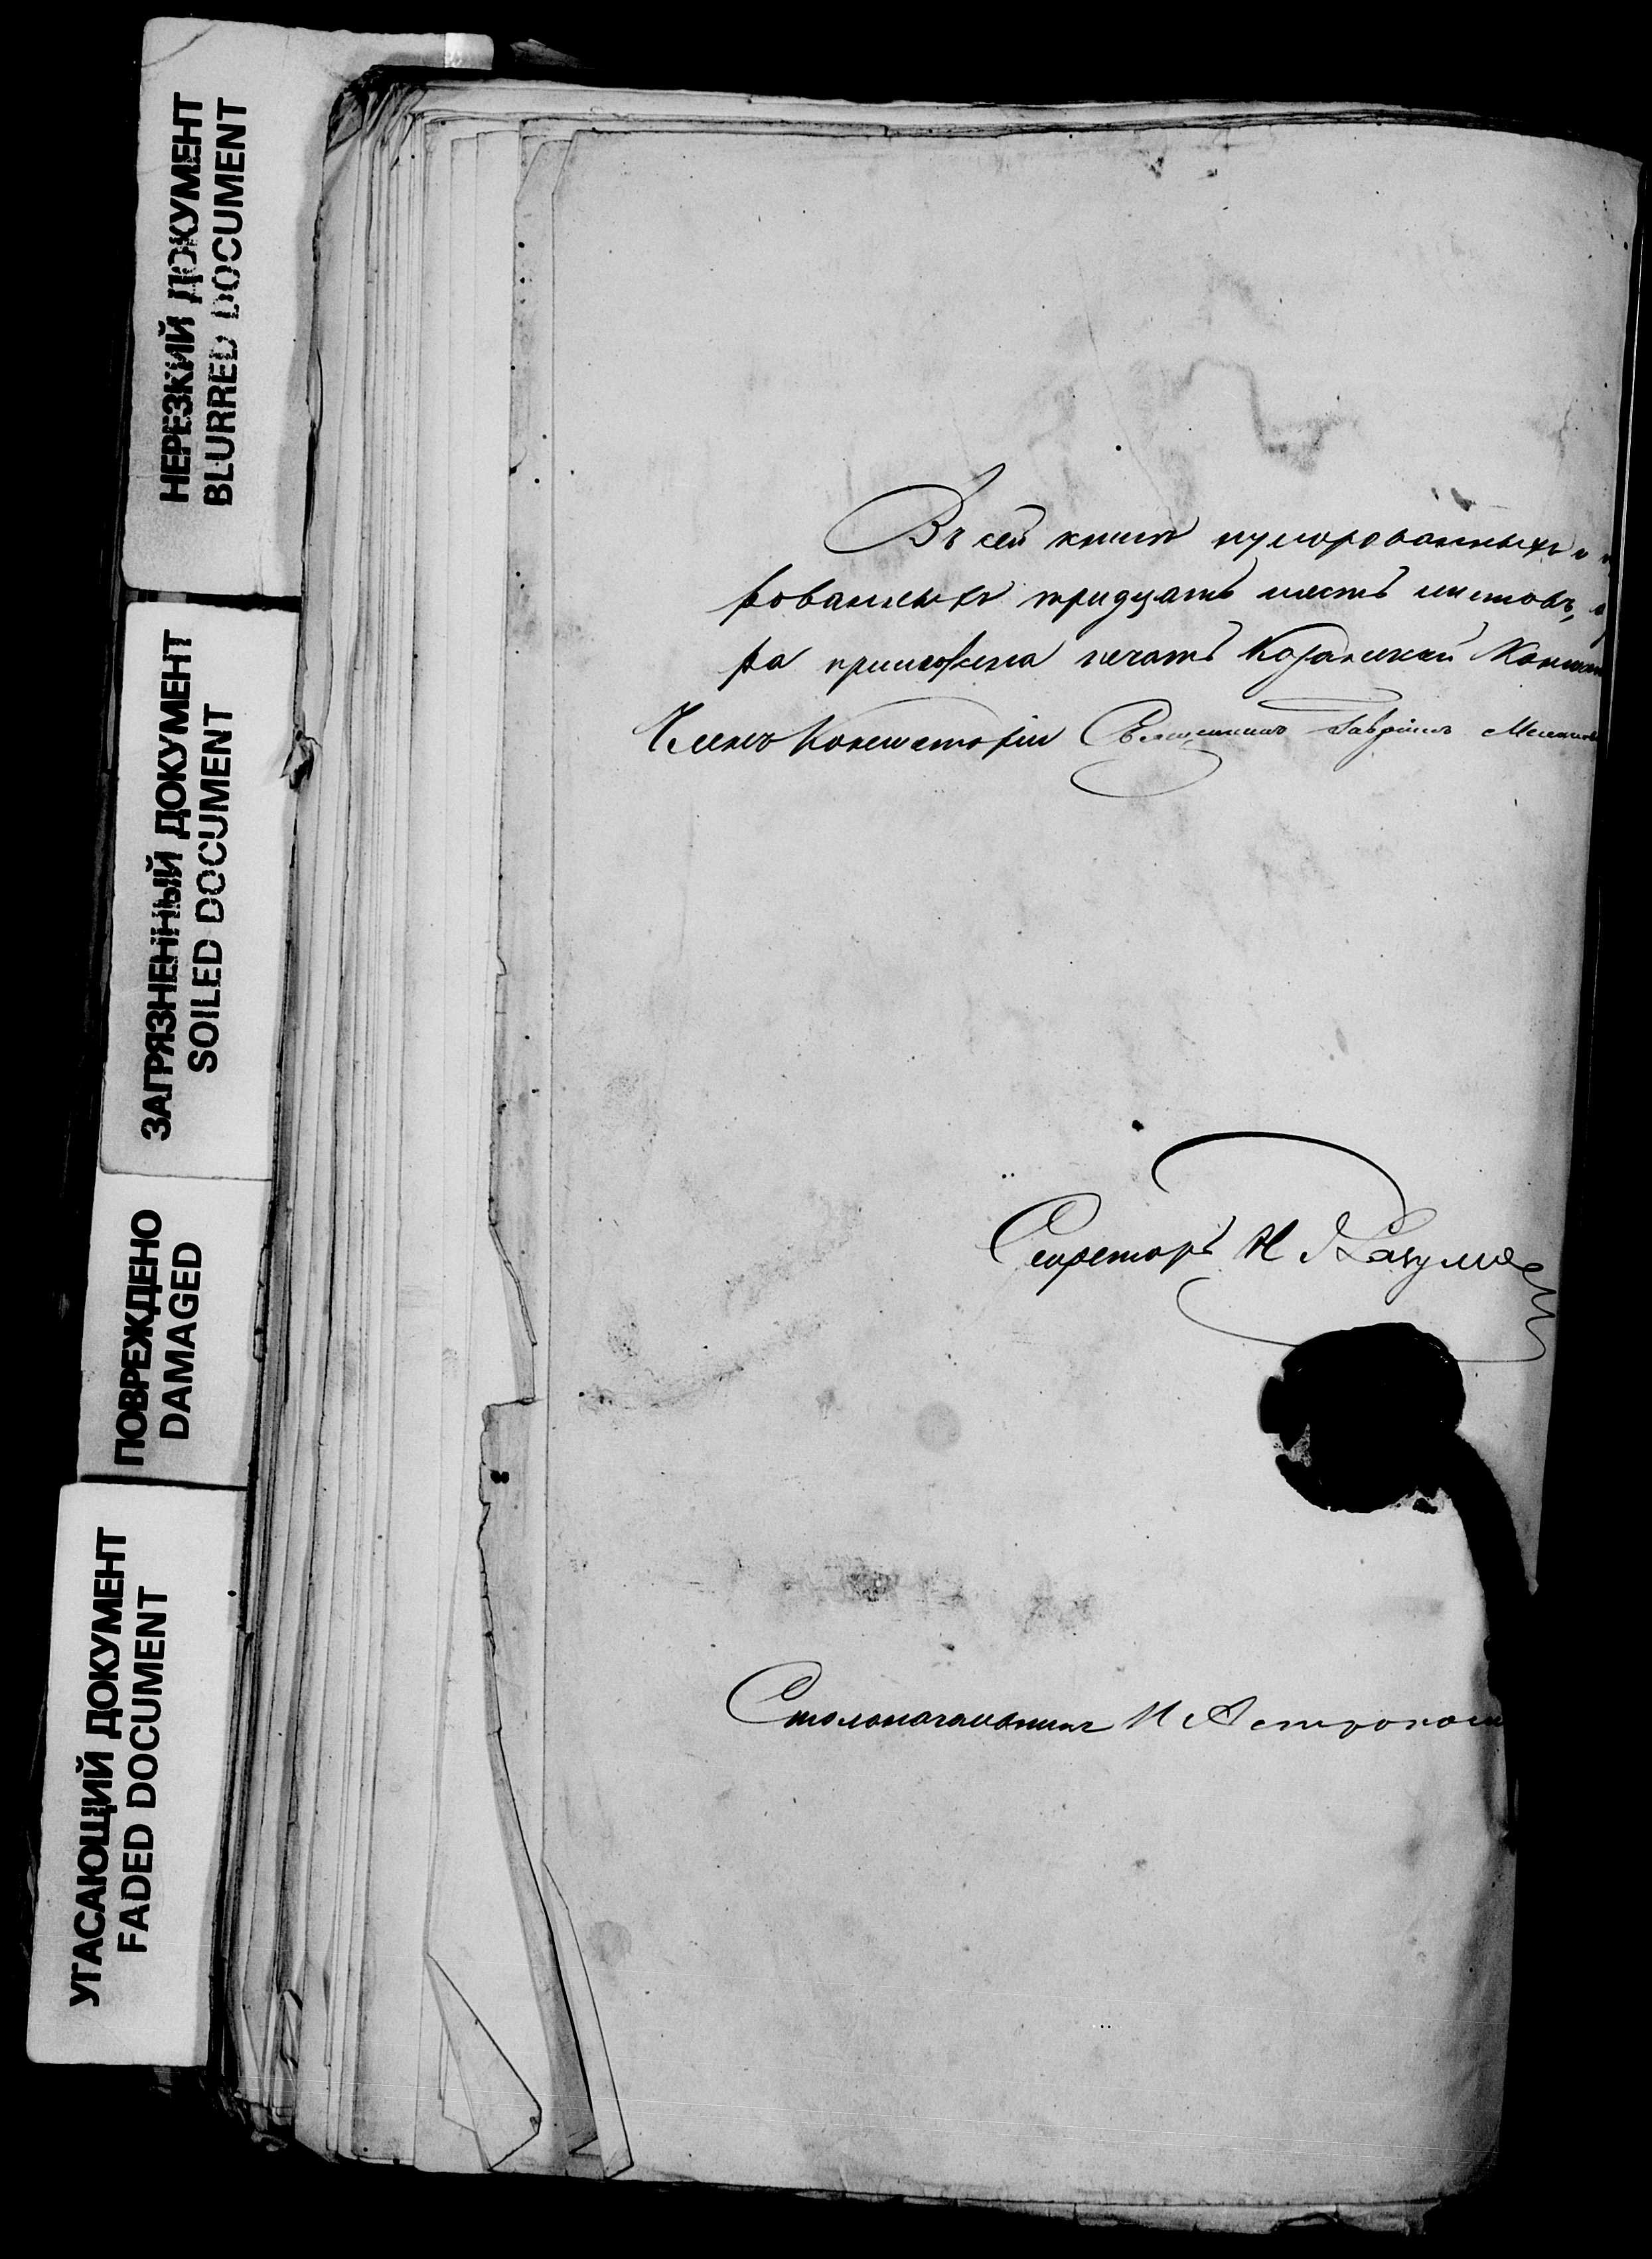 НЕРЕЗКИЙ ДОКУМЕНТ
BLURRED DOCUMENT
ЗАГРЯЗНЕННЫЙ ДОКУМЕНТ
SOILED DOCUMENT
ПОВРЕЖДЕНО
DAMAGED
УГАСАЮЩИЙ ДОКУМЕНТ
FADED DOCUMENT
Въ сей книгѣ нумерованныхъ и
рованныхъ тридцать шесть листовъ,
ра приложена печать Казанской Конси
Членъ Консисторіи Священникъ Гавріилъ
Секретарь Н Разумо
Столоначальникъ И